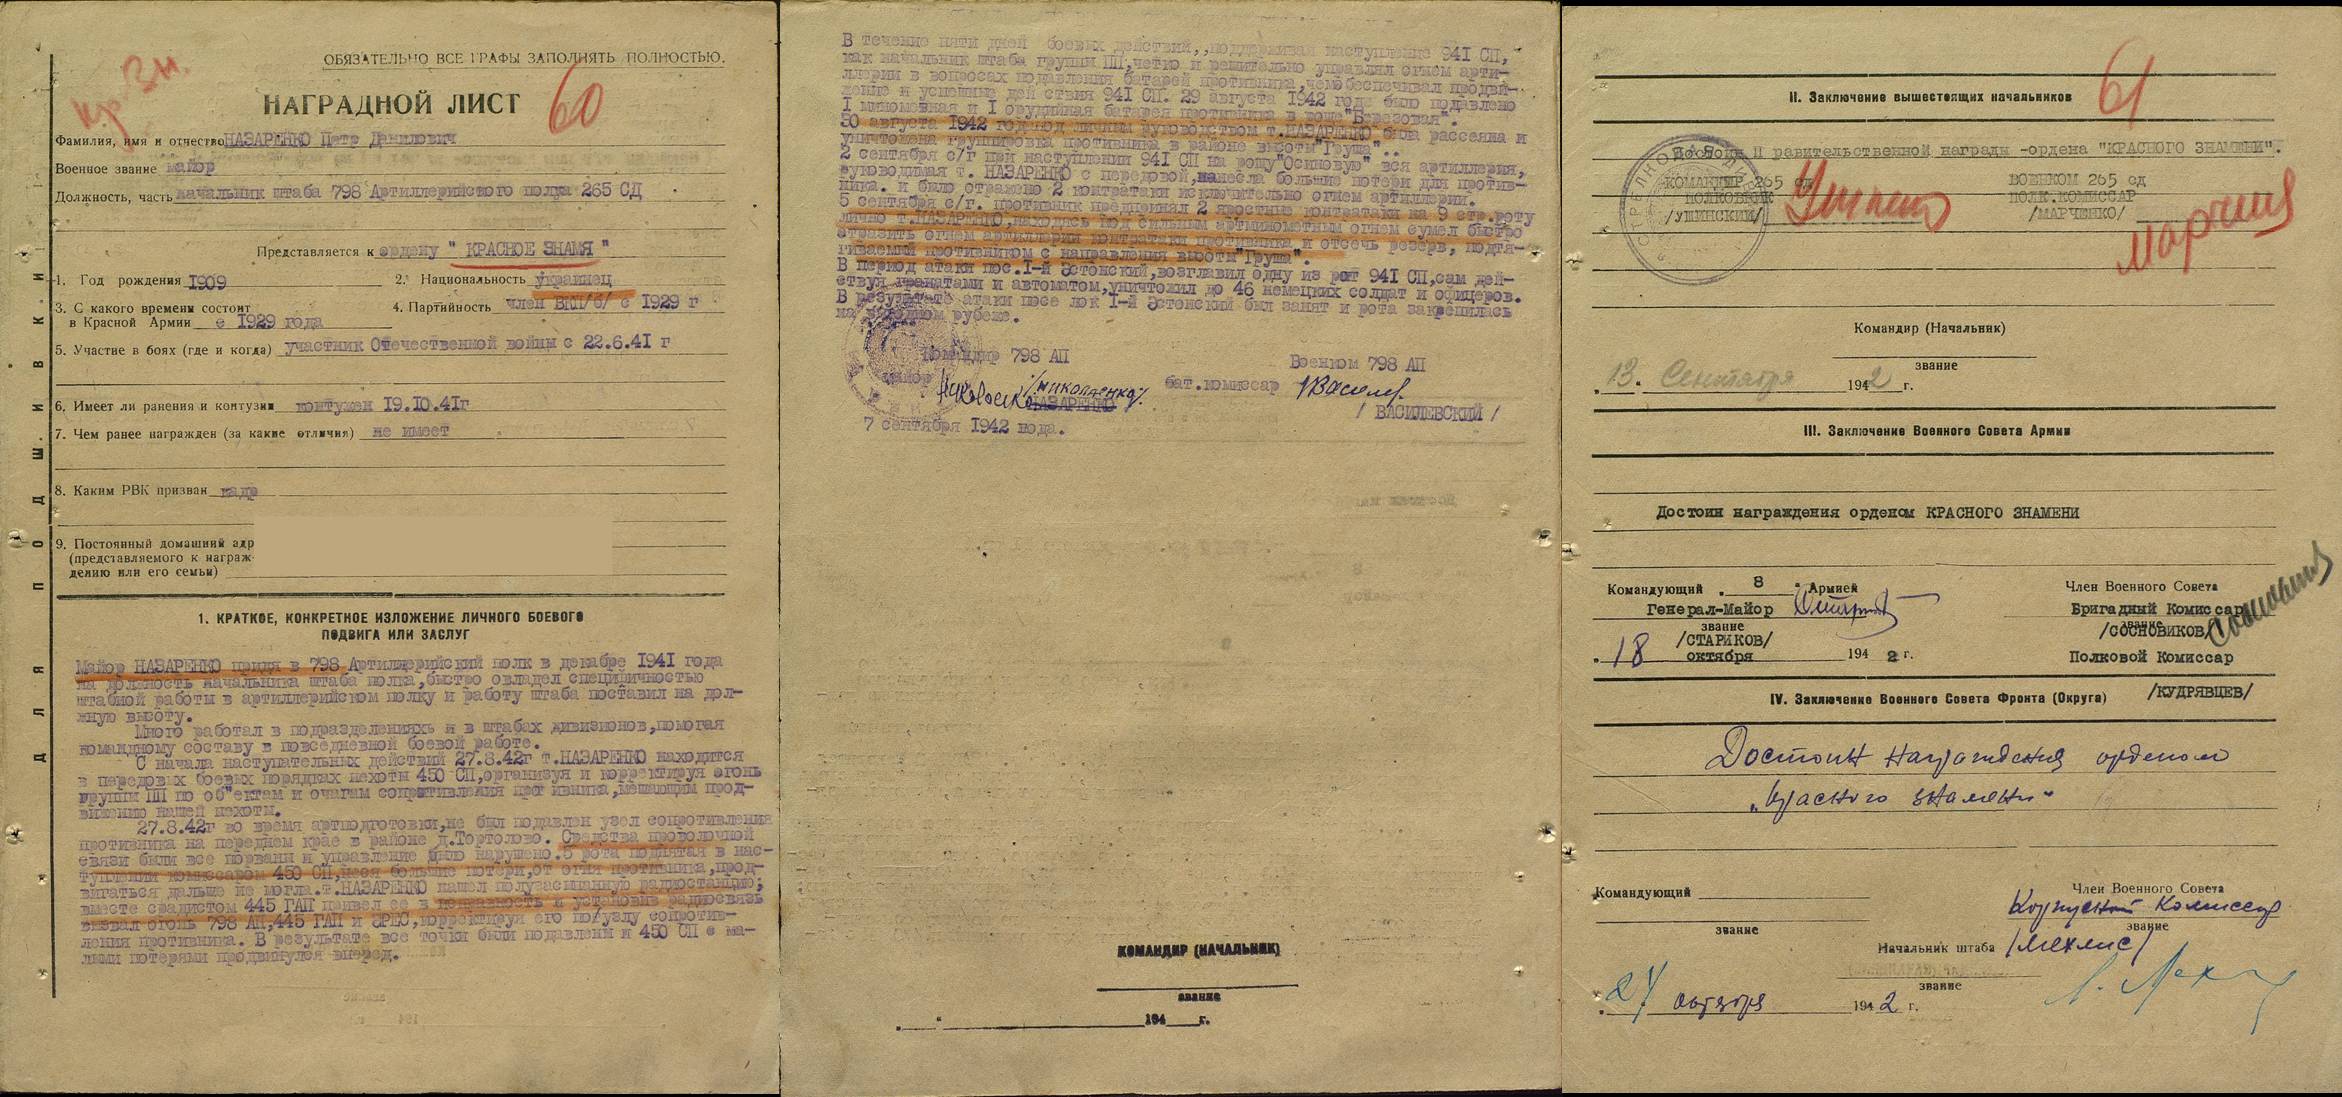 Кр. Зн.
ОБЯЗАТЕЛЬНО ВСЕ ГРАФЫ ЗАПОЛНЯТЬ ПОЛНОСТЬЮ.
60
НАГРАДНОЙ ЛИСТ
Фамилия, имя и отчество НАЗАРЕНКО Петр Данилович
Военное звание майор
Должность, часть начальник штаба 798 Артиллерийского полка 265 СД
Представляется к ордену " КРАСНОЕ ЗНАМЯ "
1. Год рождения 1909
2. Национальность украинец
3. С какого времени состоит
в Красной Армии с 1929 года
4. Партийность член ВКП/б/ с 1929 г
5. Участие в боях (где и когда) участник Отечественной войны с 22.6.41 г
6. Имеет ли ранения и контузии контужен 19.10.41г
7. Чем ранее награжден (за какие отличия) не имеет
8. Каким РВК призван кадр
9. Постоянный домашний адр
(представляемого к награж-
дению или его семьи)
ДЛЯ ПОДШИВКИ
1. КРАТКОЕ, КОНКРЕТНОЕ ИЗЛОЖЕНИЕ ЛИЧНОГО БОЕВОГО
ПОДВИГА ИЛИ ЗАСЛУГ
Майор НАЗАРЕНКО придя в 798 Артиллерийский полк в декабре 1941 года
на должность начальника штаба полка,быстро овладел специфичностью
штабной работы в артиллерийском полку и работу штаба поставил на дол-
жную высоту.
Много работал в подразделениях и в штабах дивизионов,помогая
командному составу в повседневной боевой работе.
С начала наступательных действий 27.8.42г т.НАЗАРЕНКО находится
в передовых боевых порядках пехоты 450 СП,организуя и корректируя огонь
группы ПП по об"ектам и очагам сопротивления противника,мешающим прод-
вижению нашей пехоты.
27.8.42г во время артподготовки,не был подавлен узел сопротивления
противника на переднем крае в районе д.Тортолово. Средства проволочной
связи были все порваны и управление было нарушено.5 рота поднятая в нас-
туплении комиссаром 450 СП,неся большие потери,от огня противника,прод-
вигаться дальше не могла.т.НАЗАРЕНКО нашел полузасыпанную радиостанцию,
вместе срадистом 445 ГАП привел ее в исправность и установив радиосвязь
вызвал огонь 798 АП,445 ГАП и РС,корректируя его по узлу сопротив-
ления противника. В результате все точки были подавлены и 450 СП с ма-
лыми потерями продвинулся вперед.
В течение пяти дней боевых действий,,поддерживая наступление 941 СП,
как начальник штаба группы ПП,четко и решительно управлял огнем арти-
ллерии в вопросах подавления батарей противника,чем обеспечивал продви-
жение и успешные действия 941 СП. 29 августа 1942 года было подавлено
1 минометная и 1 орудийная батарея противника в роще"Березовая".
30 августа 1942 года под личным руководством т.НАЗАРЕНКО была рассеяна и
уничтожена группировка противника в районе высоты"Груша"..
2 сентября с/г при наступлении 941 СП на рощу"Осиновую" вся артиллерия,
руководимая т. НАЗАРЕНКО с передовой,нанесла большие потери для против-
ника. и было отражено 2 контратаки исключительно огнем артиллерии.
5 сентября с/г. противник предпринял 2 яростные контратаки на 9 стр.роту
лично т.НАЗАРЕНКО,находясь под сильным артминометным огнем сумел быстро
отразить огнем артиллерии контратаки противника и отсечь резерв, подтя-
гиваемый противником с направления высоты"Груша".
В период атаки пос.1-й Эстонский,возглавил одну из рот 941 СП,сам дей-
ствуя гранатами и автоматом,уничтожил до 46 немецких солдат и офицеров.
В результате атаки поселок 1-й Эстонский был занят и рота закрепилась
на выгодном рубеже.
Командир 798 АП
майор /Николаенко/
НАЗАРЕНКО
Военком 798 АП
бат.комиссар
/ ВАСИЛЕВСКИЙ /
7 сентября 1942 года.
КОМАНДИР (НАЧАЛЬНИК)
звание
" 194 г.
61
II. Заключение вышестоящих начальников
Достоин Правительственной награды -ордена "КРАСНОГО ЗНАМЕНИ".
КОМАНДИР 265 сд
ПОЛКОВНИК
/УШИНСКИЙ/
ВОЕНКОМ 265 сд
ПОЛК.КОМИССАР
/МАРЧЕНКО/
Командир (Начальник)
звание
"13" Сентября 1942 г.
III. Заключение Военного Совета Армии
Достоин награждения орденом КРАСНОГО ЗНАМЕНИ
Командующий 8 Армией
Генерал-Майор
звание
/СТАРИКОВ/
18 октября 1942 г.
Член Военного Совета
Бригадный Комиссар
звание
/СОСНОВИКОВ/
Полковой Комиссар
/КУДРЯВЦЕВ/
IV. Заключение Военного Совета Фронта (Округа)
Достоин награждения орденом
"Красного знамени"
Командующий
звание
Член Военного Совета
Корпусной Комиссар
звание
/Мехлис/
Начальник штаба
звание
24 октября 1942 г.